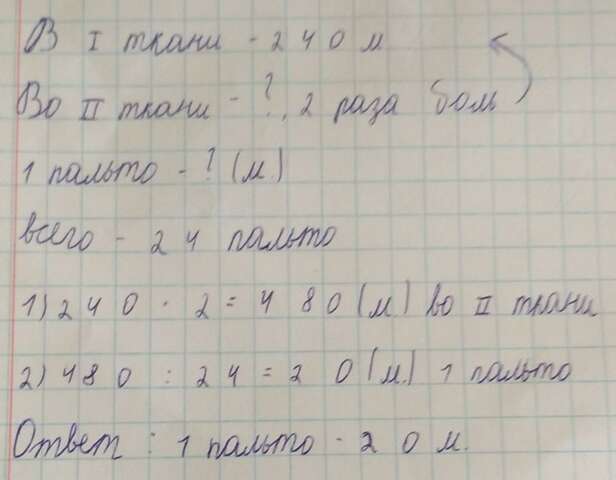 В I ткани - 240 м
Во II ткани - ?, 2 раза боль
1 пальто - ? (м)
всего - 24 пальто
1) 240 · 2 = 480 (м) во II ткани
2) 480 : 24 = 20 (м) 1 пальто
Ответ : 1 пальто - 20 м.